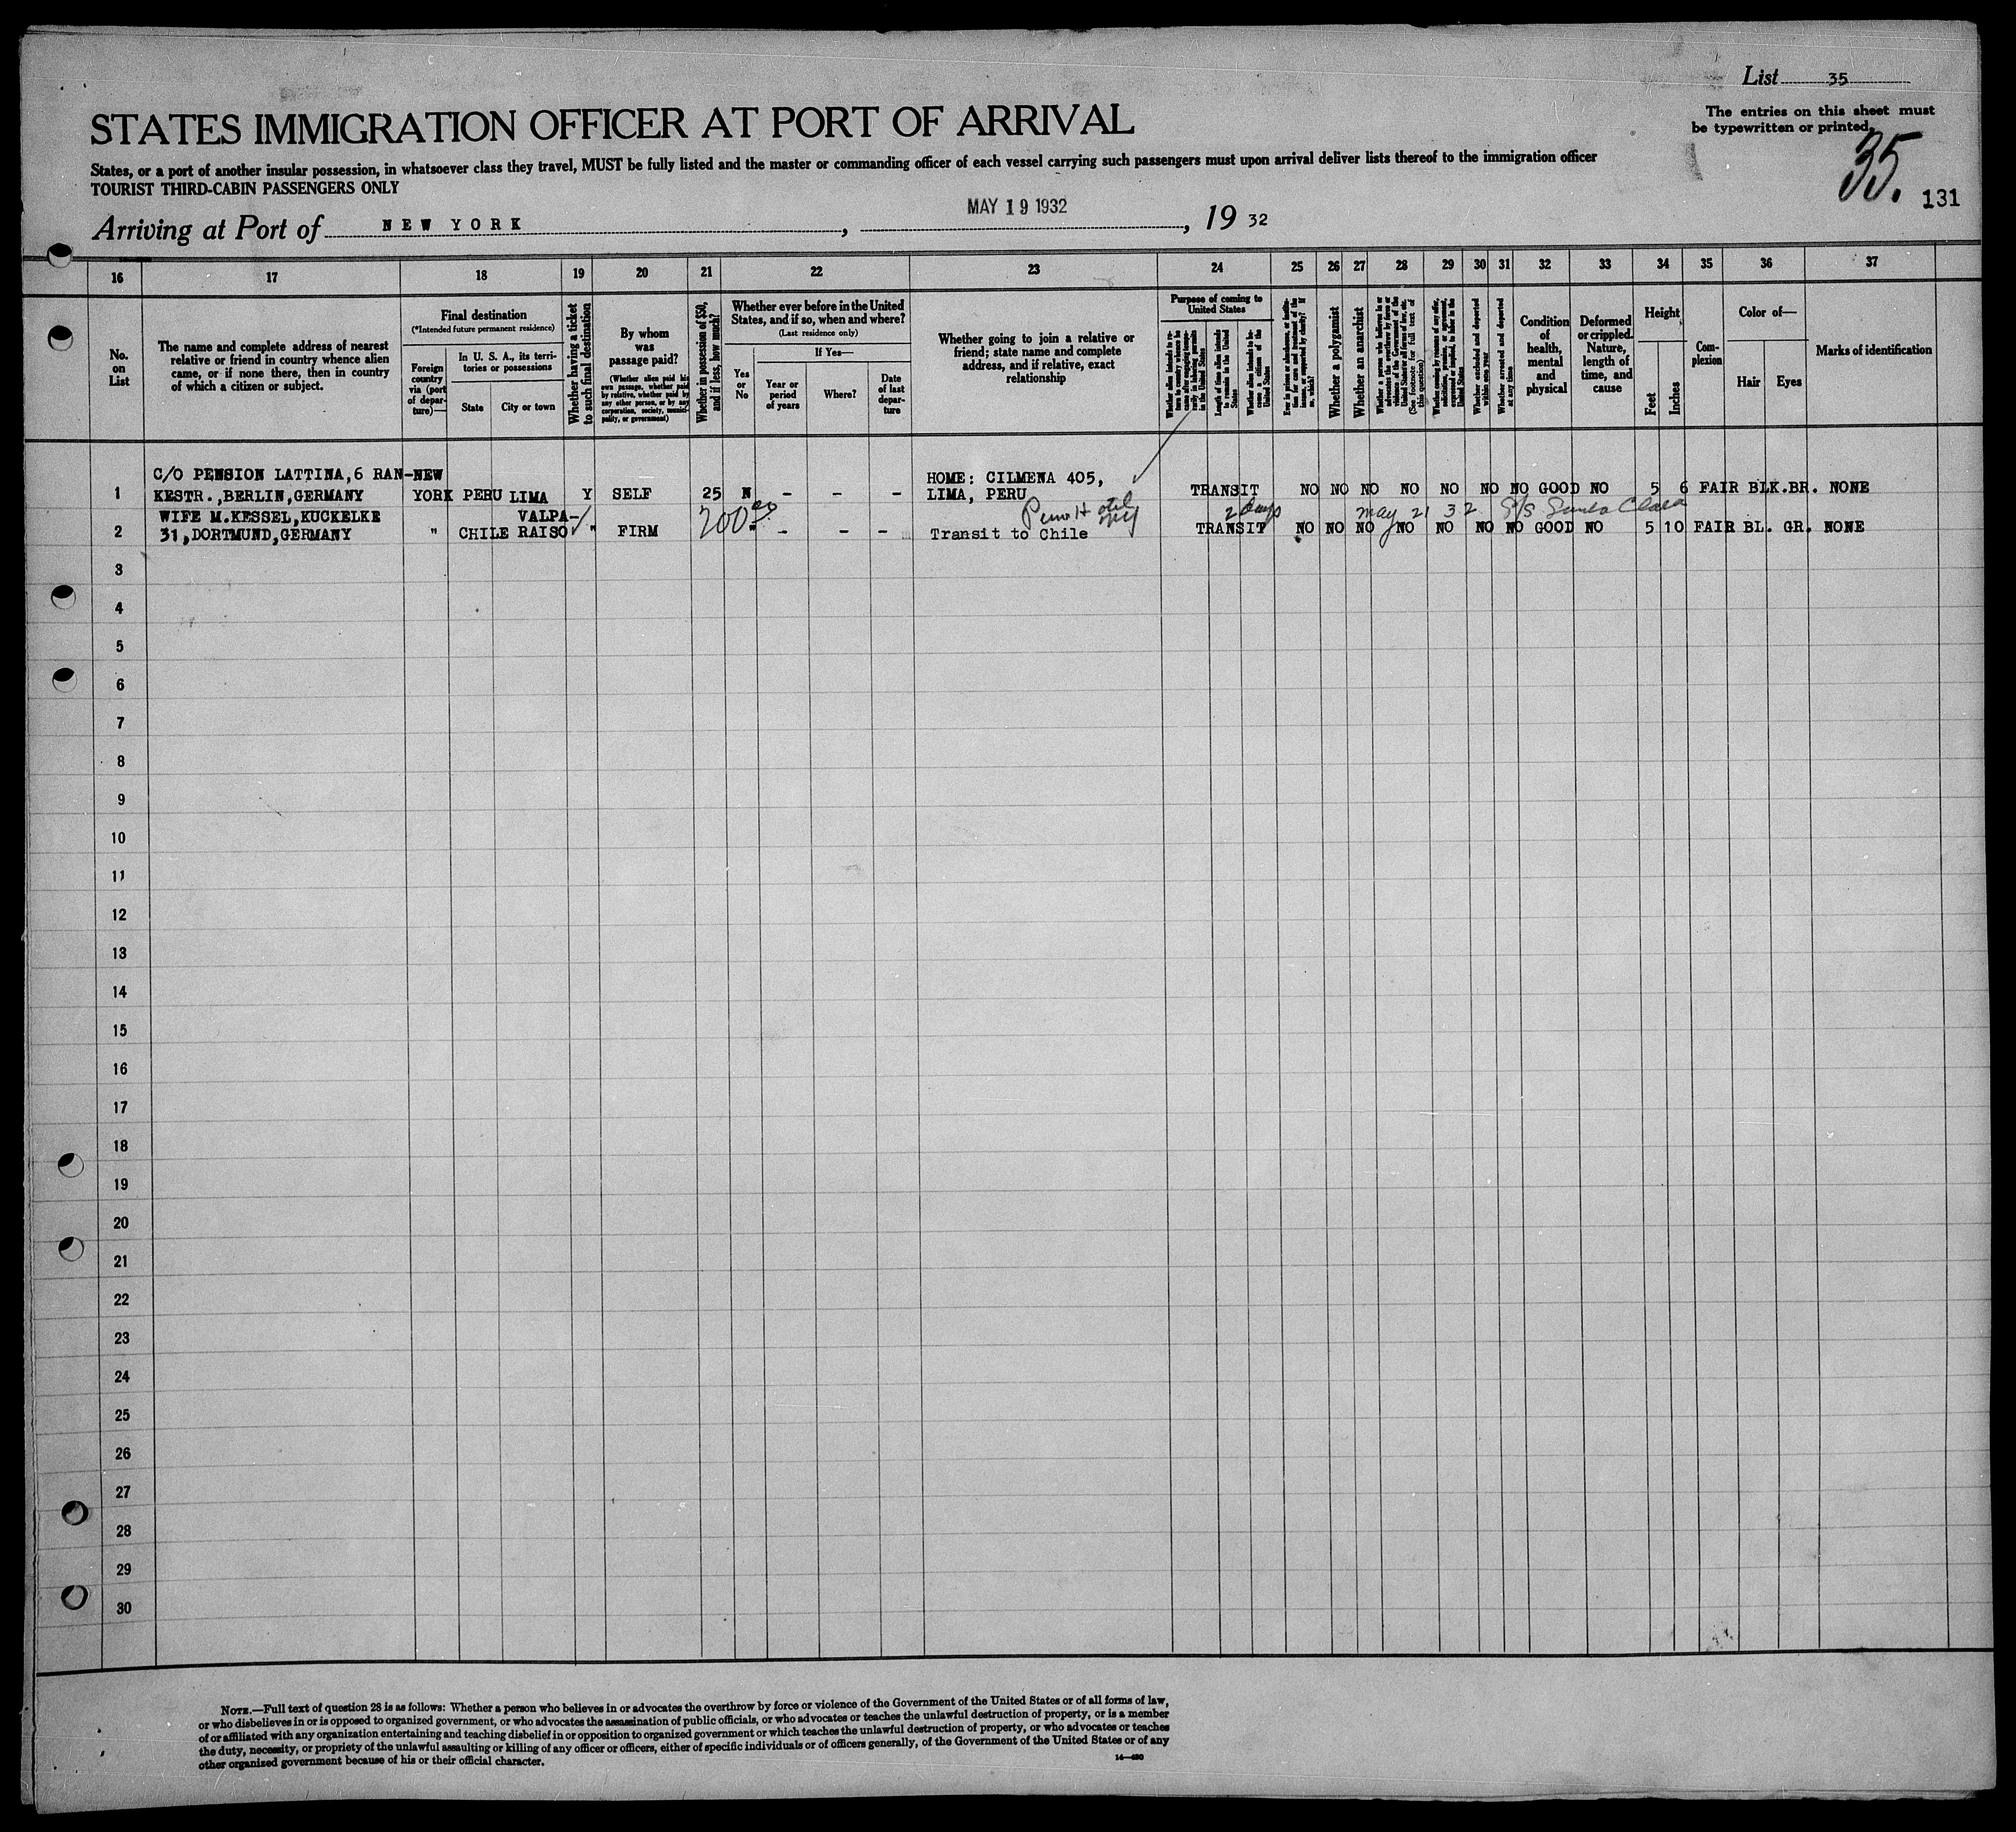 List 35
The entries on this sheet must
be typewritten or printed.
35.
131
STATES IMMIGRATION OFFICER AT PORT OF ARRIVAL
States, or a port of another insular possession, in whatsoever class they travel, MUST be fully listed and the master or commanding officer of each vessel carrying such passengers must upon arrival deliver lists thereof to the immigration officer
TOURIST THIRD-CABIN PASSENGERS ONLY
Arriving at Port of NEW YORK, MAY 19 1932, 19 32
16 17 18 19 20 21 22 23 24 25 26 27 28 29 30 31 32 33 34 35 36 37
No.
on
List
The name and complete address of nearest
relative or friend in country whence alien
came, or if none there, then in country
of which a citizen or subject.
Final destination
(*Intended future permanent residence)
Foreign
country
via (port
of depar-
ture)—
In U. S. A., its terri-
tories or possessions
State
City or town
Whether having a ticket
to such final destination
By whom
was
passage paid?
(Whether alien paid his
own passage, whether paid
by relative, whether paid by
any other person, or by any
corporation, society, munici-
pality, or government)
Whether in possession of $50,
and if less, how much?
Whether ever before in the United
States, and if so, when and where?
(Last residence only)
Yes
or
No
If Yes—
Year or
period
of years
Where?
Date
of last
depar-
ture
Whether going to join a relative or
friend; state name and complete
address, and if relative, exact
relationship
Purpose of coming to
United States
Whether alien intends to re-
turn to country whence he
came after engaging tempo-
rarily in laboring pursuits
in the United States
Length of time alien intends
to remain in the United
States
Whether alien intends to be-
come a citizen of the
United States
Whether a polygamist
Whether an anarchist
(See footnote for full text of
this question)
Whether excluded and deported
within one year
Whether arrested and deported
at any time
Condition
of
health,
mental
and
physical
Deformed
or crippled.
Nature,
length of
time, and
cause
Height
Feet
Inches
Com-
plexion
Color of—
Hair
Eyes
Marks of identification
C/O PENSION LATTINA,6 RAN-NEW HOME: CILMENA 405,
1 KESTR.,BERLIN,GERMANY YORK PERU LIMA Y SELF 25 N - - - LIMA, PERU TRANSIT NO NO NO NO NO NO NO GOOD NO 5 6 FAIR BLK.BR. NONE
WIFE M.KESSEL,KUCKELKE VALPA- 200 00 2 days May 21 32 S/S Santa Clara
2 31,DORTMUND,GERMANY " CHILE RAISO " FIRM " - - - Transit to Chile TRANSIT NO NO NO NO NO NO NO GOOD NO 5 10 FAIR BL. GR. NONE
3
4
5
6
7
8
9
10
11
12
13
14
15
16
17
18
19
20
21
22
23
24
25
26
27
28
29
30
NOTE.—Full text of question 28 is as follows: Whether a person who believes in or advocates the overthrow by force or violence of the Government of the United States or of all forms of law,
or who disbelieves in or is opposed to organized government, or who advocates the assassination of public officials, or who advocates or teaches the unlawful destruction of property, or is a member
of or affiliated with any organization entertaining and teaching disbelief in or opposition to organized government or which teaches the unlawful destruction of property, or who advocates or teaches
the duty, necessity, or propriety of the unlawful assaulting or killing of any officer or officers, either of specific individuals or of officers generally, of the Government of the United States or of any
other organized government because of his or their official character.
14—480